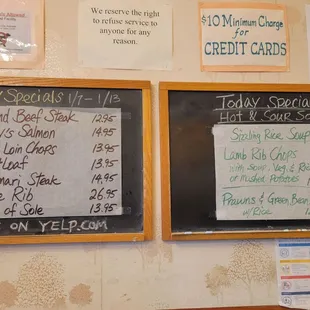 We reserve the right to
refuse service to
anyone for any
reason.
$10 Minimum Charge
for
CREDIT CARDS
Specials 1/7 - 1/13
nd Beef Steak 12.95
's Salmon 14.95
Loin Chops 13.95
tloaf 13.95
mari Steak 14.95
e Rib 26.95
of Sole 13.95
ON YELP.COM
Today Special
Hot & Sour So
Sizzling Rice Soup
Lamb Rib Chops
with Soup, Veg. & Rice
or Mashed Potatoes
Prawns & Green Bean
w/ Rice